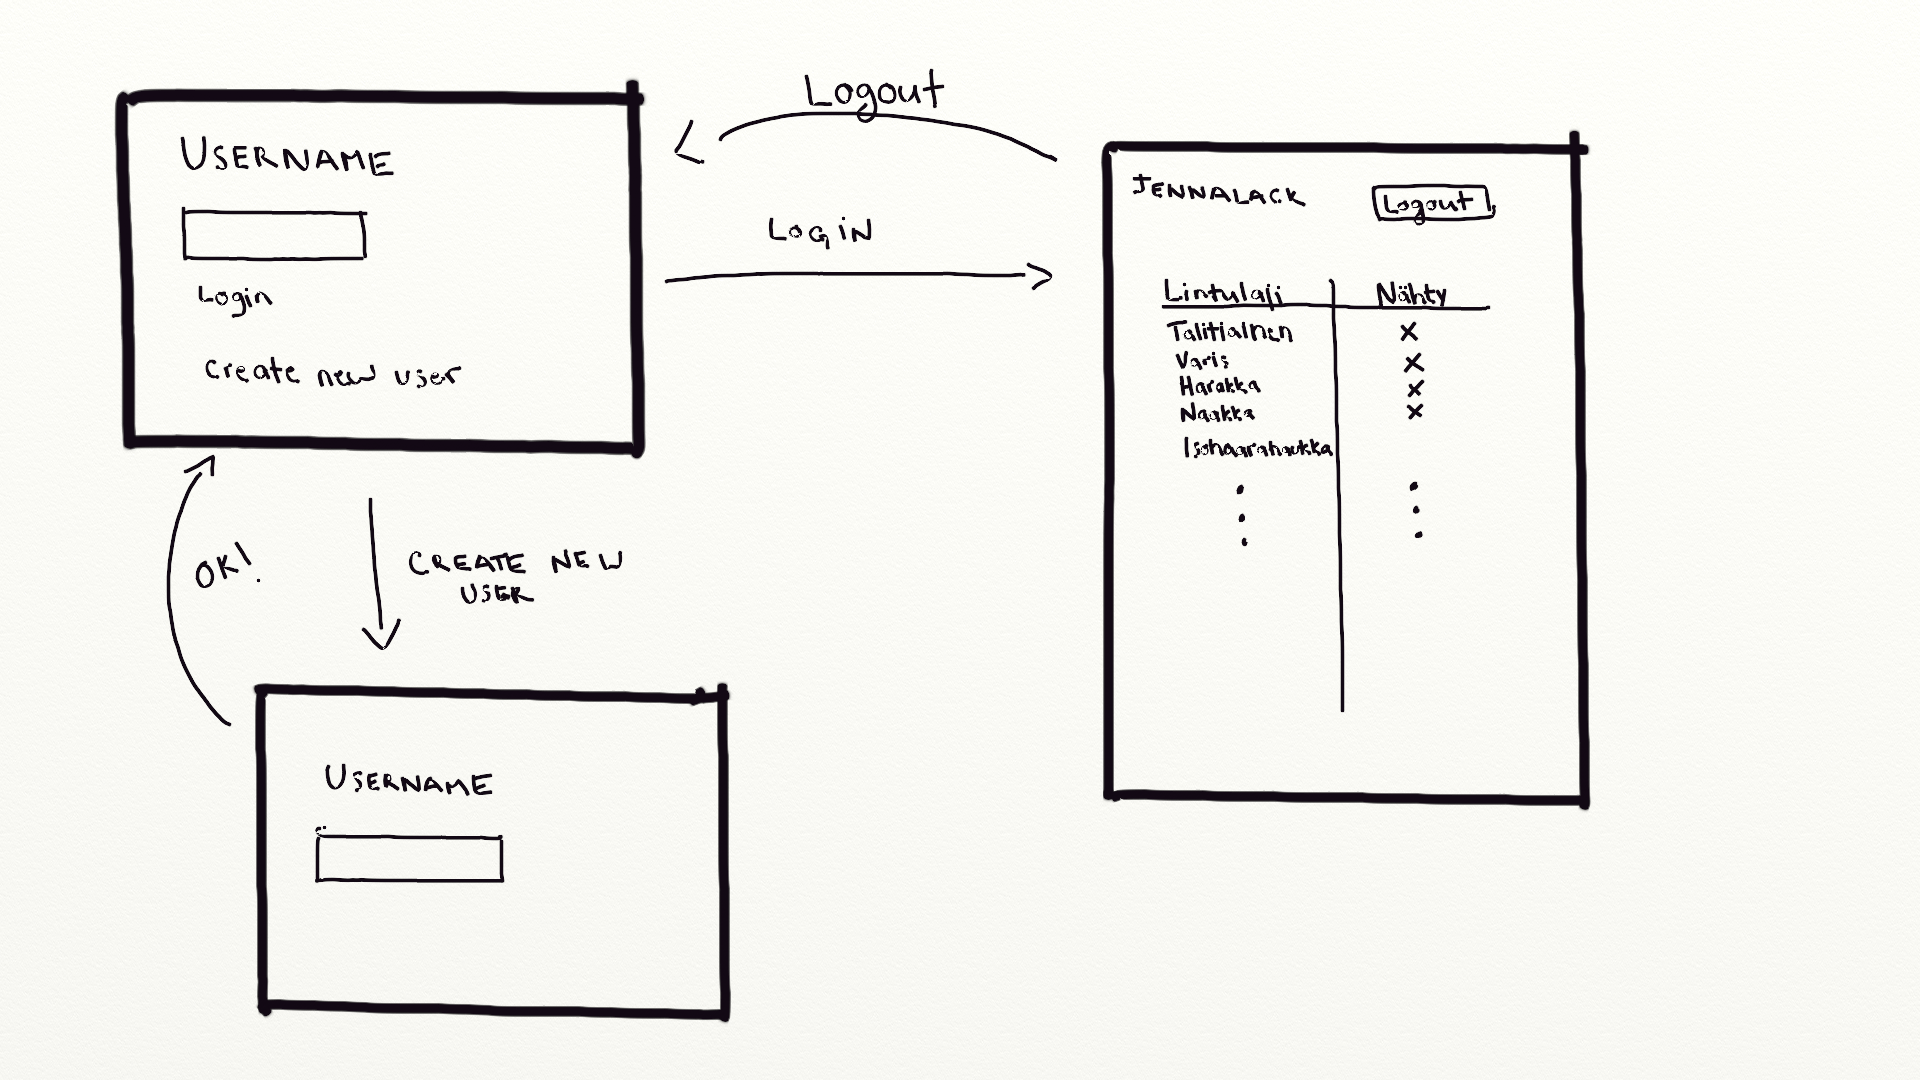 USERNAME
Login
create new user
Logout
LOGIN
JENNALACK
Logout
Lintulaji Nähty
Talitiainen X
Varis X
Harakka X
Naakka X
Isohaarahaukka
OK!
CREATE NEW
USER
USERNAME